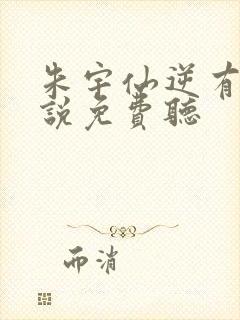 朱宇仙逆有
說免費聽
而消